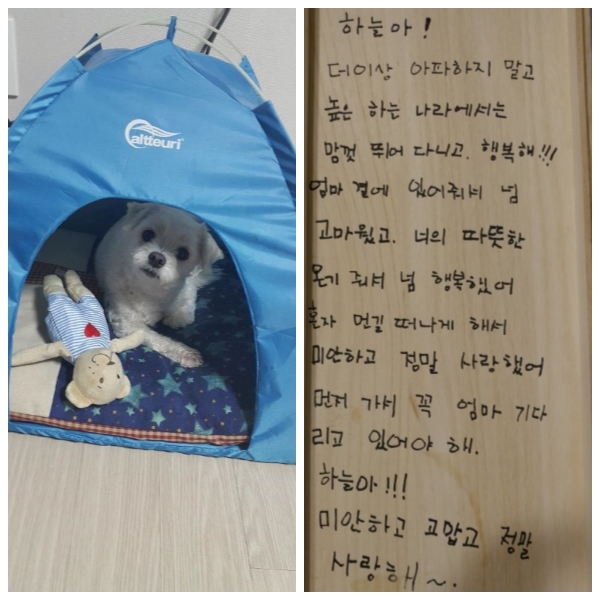 altfeuri
하늘아!
더이상 아파하지 말고
높은 하는 나라에서는
맘껏 뛰어 다니고. 행복해!!!
엄마 곁에 있어줘서 넘
고마웠고. 너의 따뜻한
온기 줘서 넘 행복했어
혼자 먼길 떠나게 해서
미안하고 정말 사랑했어
먼저 가서 꼭 엄마 기다
리고 있어야 해.
하늘아!!!
미안하고 고맙고 정말
사랑해~.